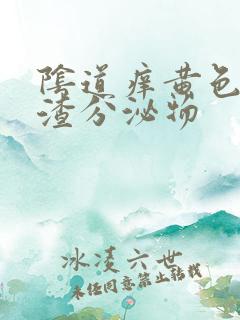 陰道痒黄色
渣分泌物
冰凌六世
未经同意禁止转载